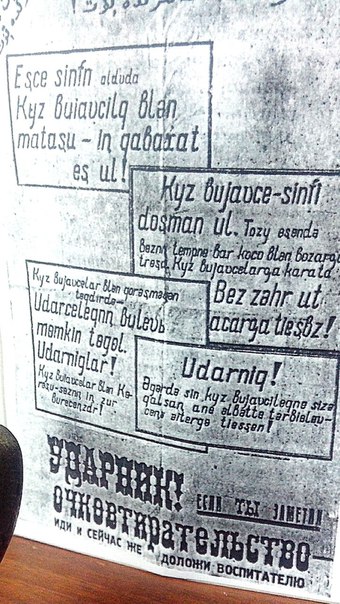 Esçe sinfn alduda
Kyz bujavcilq blən
matasu – in qabaxat
eş ul!
Kyz bujavce-sinfi
doşman ul. Tozy eşendə
beznŋ tempnə bar koco blən bozarga
treşə. Kyz bujavcelarga karata
Bez zəhr ut
açarga tieşbz!
Kyz bujavcelar blən
təgdirdə–
Udarcelegnŋ buləvь
məmkin təgəl.
Udarniglar!
Kyz bujavcelar blən Kə-
rəşu-səznŋ in zur
burecenzdr!
Udarniq!
Əgərdə sin kyz bujavcilegne sizə
qalsaŋ, ane elbətte tərbieləv-
cenə əitergə tiessen!
УДАРНИК!
ЕСЛИ ТЫ ЗАМЕТИЛ
ОЧКОВТИРАТЕЛЬСТВО–
ИДИ И СЕЙЧАС ЖЕ ДОЛОЖИ ВОСПИТАТЕЛЮ